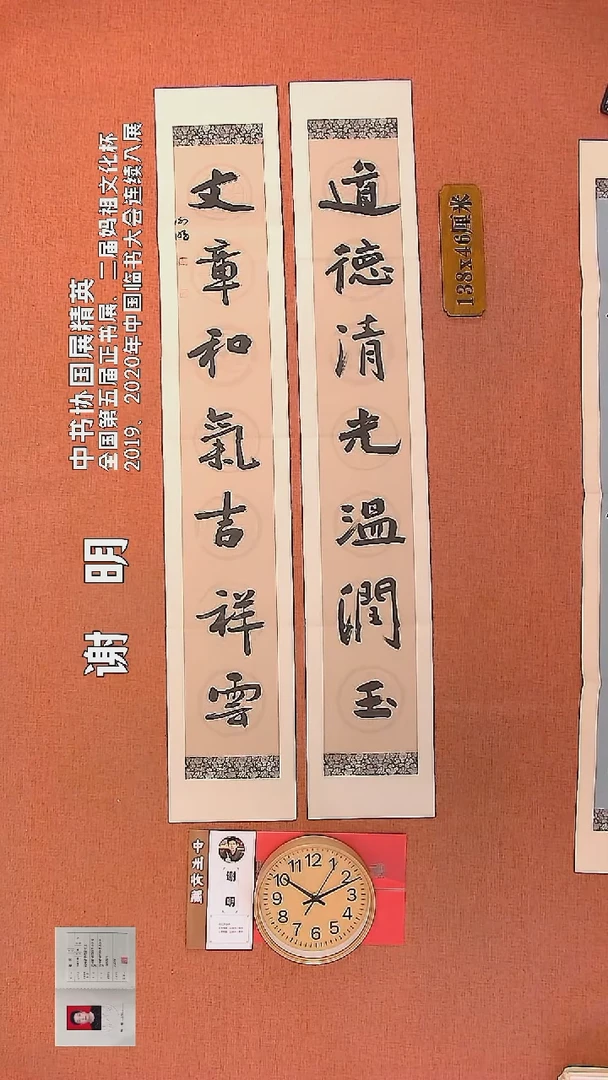 道德清光温潤玉
文章和氣吉祥雲
138x46厘米
谢 明
中书协国展精英
全国第五届正书展、二届妈祖文化杯
2019、2020年中国临书大会连续入展
谢 明
12
1
2
3
4
5
6
7
8
9
10
11